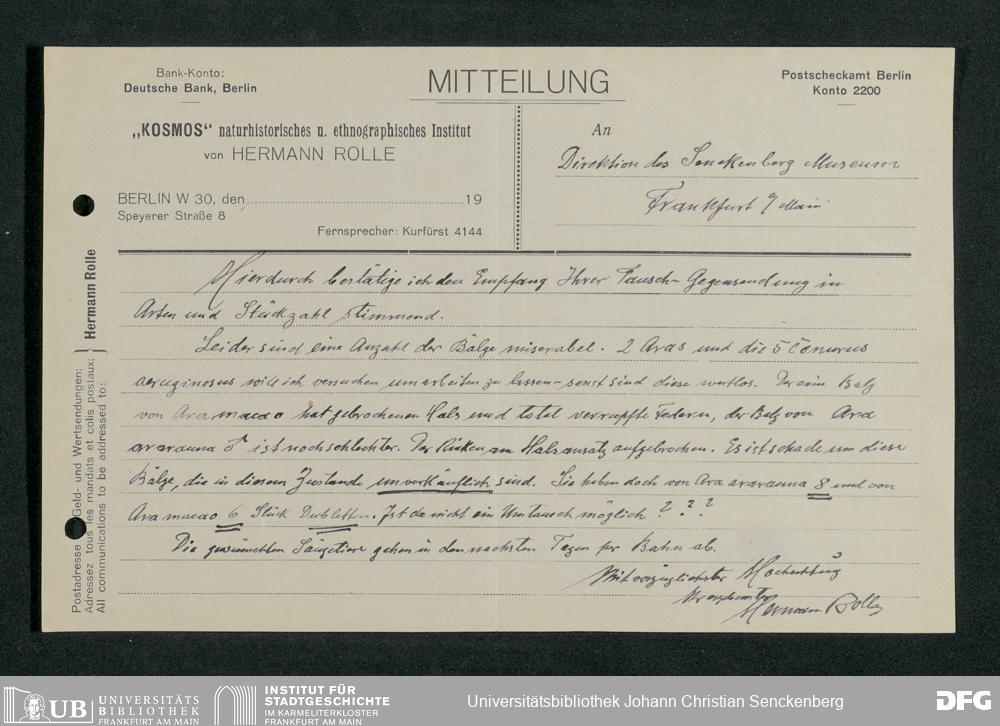 Bank-Konto:
Deutsche Bank, Berlin
MITTEILUNG
Postscheckamt Berlin
Konto 2200
„KOSMOS“ naturhistorisches u. ethnographisches Institut
von HERMANN ROLLE
BERLIN W 30, den 19
Speyerer Straße 8
Fernsprecher: Kurfürst 4144
An
Direktion des Senckenberg Museum
Frankfurt a/Main
Postadresse für Geld- und Wertsendungen:
Adressez tous les mandats et colis postaux:
All communications to be addressed to:
Hermann Rolle
Hierdurch bestätige ich den Empfang Ihrer Tausch-Gegensendung in
Arten und Stückzahl stimmend.
Leider sind eine Anzahl der Bälge miserabel. 2 Aras und die 5 Conurus
aeruginosus will ich versuchen umarbeiten zu lassen – sonst sind diese wertlos. Der eine Balg
von Ara macao hat gebrochenen Hals und total verrupfte Federn, der Balg von Ara
ararauna ♂ ist noch schlechter. Der Rücken am Halsansatz aufgebrochen. Es ist schade um diese
Bälge, die in diesem Zustande unverkäuflich sind. Sie haben doch von Ara ararauna 8 und von
Ara macao 6 Stück Dubletten. Ist da nicht ein Umtausch möglich ? ? ?
Die gewünschten Säugetiere gehen in den nächsten Tagen per Bahn ab.
Mit vorzüglichster Hochachtung
Ihr ergebenster
Hermann Rolle
UB
UNIVERSITÄTS
BIBLIOTHEK
FRANKFURT AM MAIN
INSTITUT FÜR
STADTGESCHICHTE
IM KARMELITERKLOSTER
FRANKFURT AM MAIN
Universitätsbibliothek Johann Christian Senckenberg
DFG